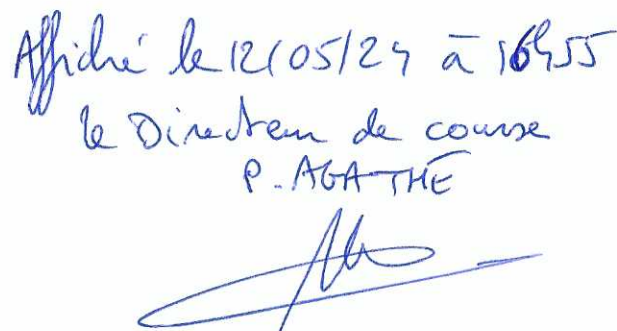 Affiché le 12/05/24 à 16h55
le Directeur de course
P. AGATHE